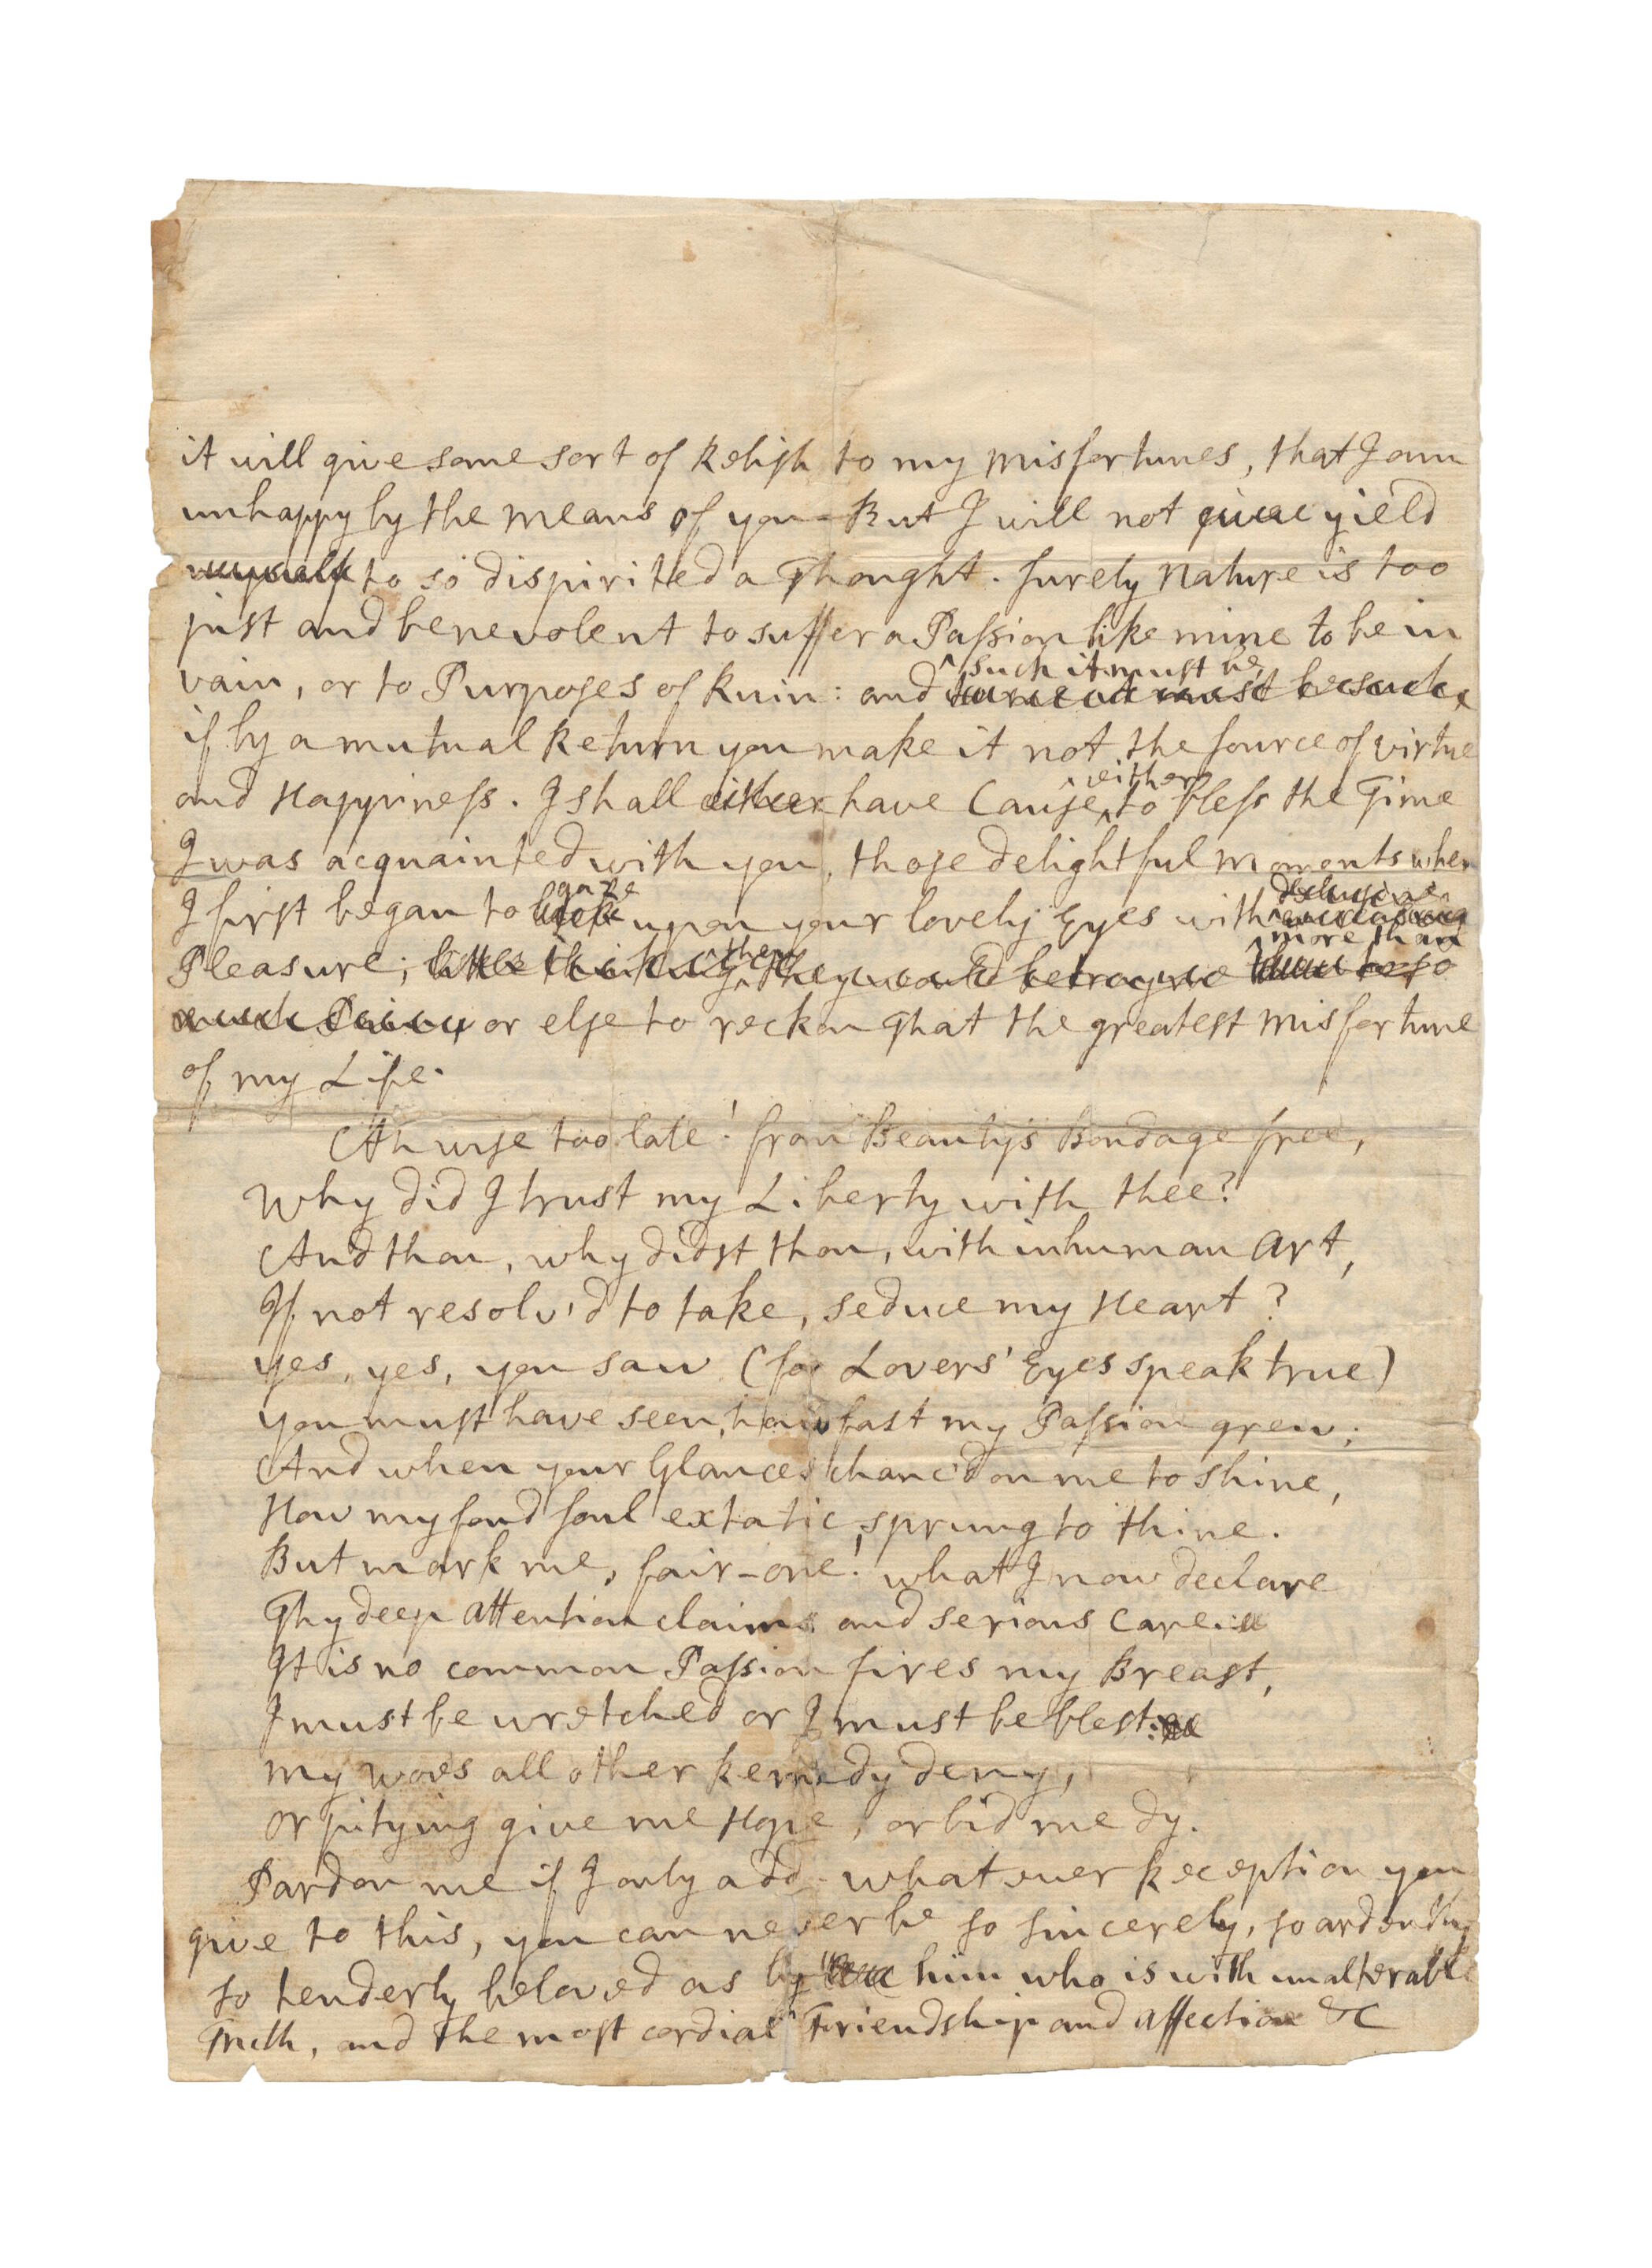 it will give some sort of Relish to my misfortunes, that I am
unhappy by the means of you - But I will not give yield
myself to so dispirited a Thought. Surely Nature is too
just and benevolent to suffer a Passion like mine to be in
such it must be
vain, or to Purposes of Ruin: and must be such,
if by a mutual Return you make it not the Source of Virtue
either
and Happiness. I shall either have Cause, to bless the Time
I was acquainted with you, those delightful moments when
gaze
I first began to look upon your lovely Eyes with
then more than
Pleasure; little thinking they would betray me to so
much Pain; or else to reckon That the greatest misfortune
of my Life.
Ah wise too late! from Beauty's Bondage free,
Why did I trust my Liberty with thee?
And thou, why didst thou, with inhuman Art,
If not resolv'd to take, seduce my Heart?
Yes, yes, you saw (for Lovers' Eyes speak true)
You must have seen, how fast my Passion grew;
And when your Glances chanc'd on me to shine,
How my fond Soul extatic sprung to thine.
But mark me, fair-one! what I now declare
Thy deep Attention claims and serious Care:
It is no common Passion fires my Breast,
I must be wretched or I must be blest:
My woes all other Remedy deny,
Or pitying give me Hope, or bid me dy.
Pardon me if I only add - whatever Reception you
give to this, you can never be so Sincerely, so ardently
so tenderly beloved as by him who is with unalterable
Truth, and the most cordial Friendship and Affection &c